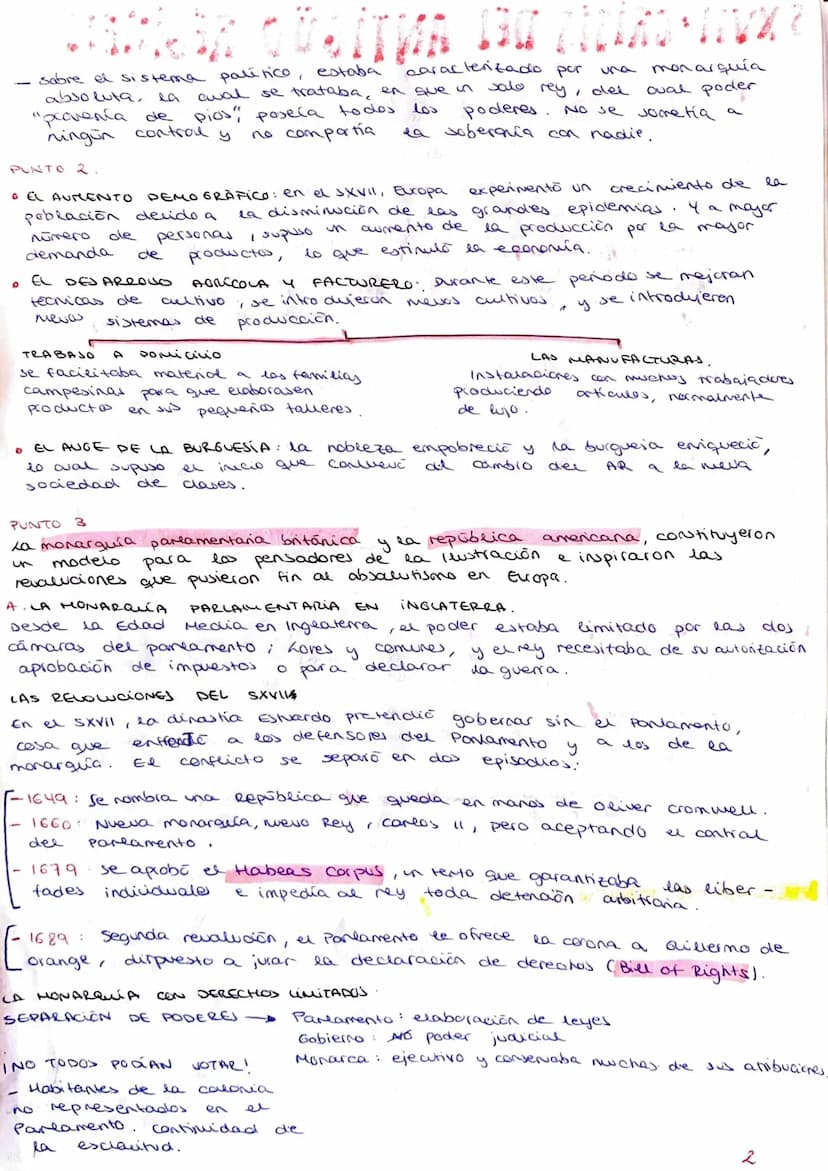 SXVIII: CRISIS DEL ANTIGUO RÉGIMEN
- sobre el sistema político, estaba caracterizado por una monarquía
absoluta, la cual se trataba, en que un solo rey, del cual poder
"provenía de Dios", poseía todos los poderes. No se sometía a
ningún control y no compartía la soberanía con nadie.
PUNTO 2.
• EL AUMENTO DEMOGRÁFICO: en el SXVII, Europa experimentó un crecimiento de la
población debido a la disminución de las grandes epidemias. Y a mayor
número de personas, supuso un aumento de la producción por la mayor
demanda de productos, lo que estimuló la economía.
• EL DESARROLLO AGRÍCOLA Y FACTURERO: Durante este periodo se mejoran
técnicas de cultivo, se introdujeron nuevos cultivos, y se introdujeron
nuevos sistemas de producción.
TRABAJO A DOMICILIO
se facilitaba material a las familias
campesinas para que elaborasen
productos en sus pequeños talleres.
LAS MANUFACTURAS.
Instalaciones con muchos trabajadores
produciendo artículos, normalmente
de lujo.
• EL AUGE DE LA BURGUESÍA: la nobleza empobreció y la burguesia enriqueció,
lo cual supuso el inicio que conllevó al cambio del AR a la nueva
sociedad de clases.
PUNTO 3
La monarquía parlamentaria británica y la república americana, constituyeron
un modelo para los pensadores de la Ilustración e inspiraron las
revoluciones que pusieron fin al absolutismo en Europa.
A. LA MONARQUÍA PARLAMENTARIA EN INGLATERRA.
Desde la Edad Media en Inglaterra, el poder estaba limitado por las dos
cámaras del parlamento; Lores y comunes, y el rey necesitaba de su autorización
aprobación de impuestos o para declarar la guerra.
LAS REVOLUCIONES DEL SXVII
En el SXVII, la dinastía Estuardo pretendió gobernar sin el Parlamento,
cosa que enfrentó a los defensores del Parlamento y a los de la
monarquía. El conflicto se separó en dos episodios:
- 1649: Se nombra una República que queda en manos de Oliver Cromwell.
- 1660: Nueva monarquía, nuevo Rey, Carlos II, pero aceptando el control
del Parlamento.
- 1679 se aprobó el Habeas Corpus, un texto que garantizaba las liber-
tades individuales e impedía al rey toda detención arbitraria.
- 1689: Segunda revolución, el Parlamento le ofrece la corona a Guillermo de
Orange, dispuesto a jurar la declaración de derechos (Bill of Rights).
LA MONARQUÍA CON DERECHOS LIMITADOS
SEPARACIÓN DE PODERES → Parlamento: elaboración de leyes
Gobierno: NO poder judicial
Monarca: ejecutivo y conservaba muchas de sus atribuciones.
¡NO TODOS PODÍAN VOTAR!
- Habitantes de la colonia
no representados en el
Parlamento. Continuidad de
la esclavitud.
2